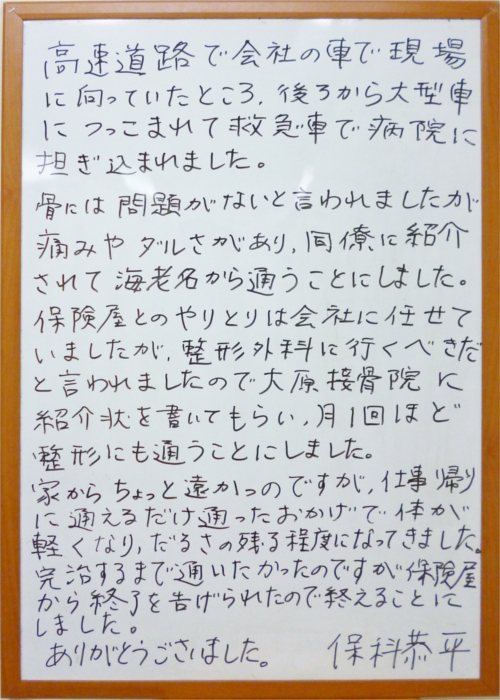 高速道路で会社の車で現場
に向っていたところ、後ろから大型車
につっこまれて救急車で病院に
担ぎ込まれました。
骨には問題がないと言われましたが
痛みやダルさがあり、同僚に紹介
されて海老名から通うことにしました。
保険屋とのやりとりは会社に任せて
いましたが、整形外科に行くべきだ
と言われましたので大原接骨院に
紹介状を書いてもらい、月1回ほど
整形にも通うことにしました。
家からちょっと遠かつのですが、仕事帰り
に通えるだけ通ったおかげで体が
軽くなり、だるさの残る程度になってきました。
完治するまで通いたかったのですが保険屋
から終了を告げられたので終えることに
しました。
ありがとうございました。 保科恭平